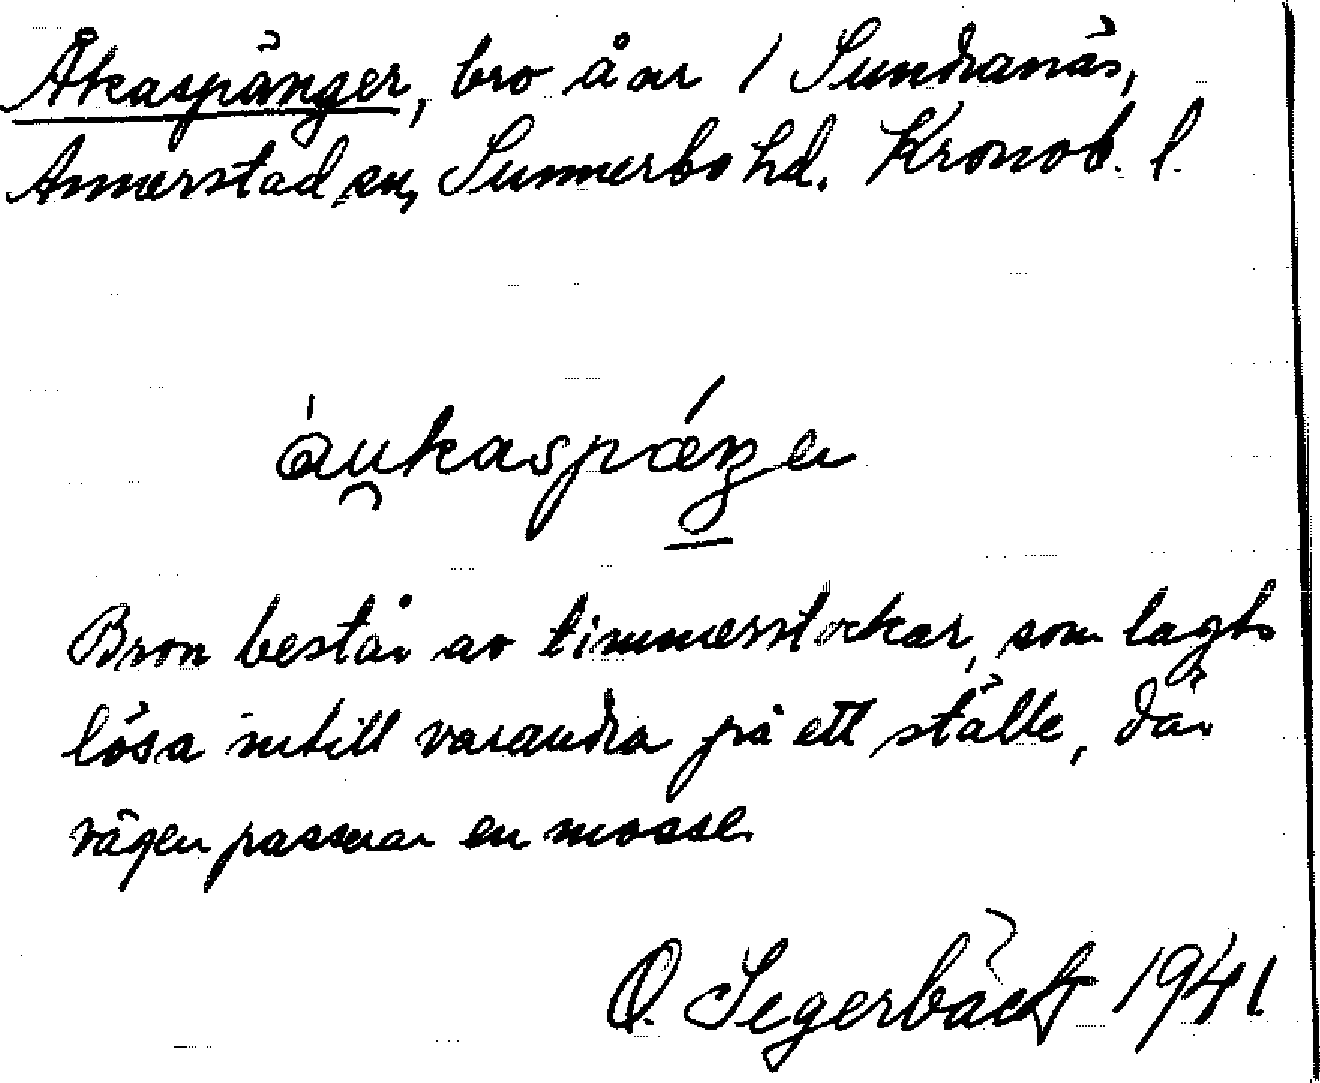 Åkaspänger, bro å ar 1 Sundranäs,
Annerstad sn, Sunnerbo hd. Kronob. l.
áu̯kaspáŋer
Bron består av timmerstockar, som lagts
lösa intill varandra på ett ställe, där
vägen passerar en mosse.
O. Segerbäck 1941